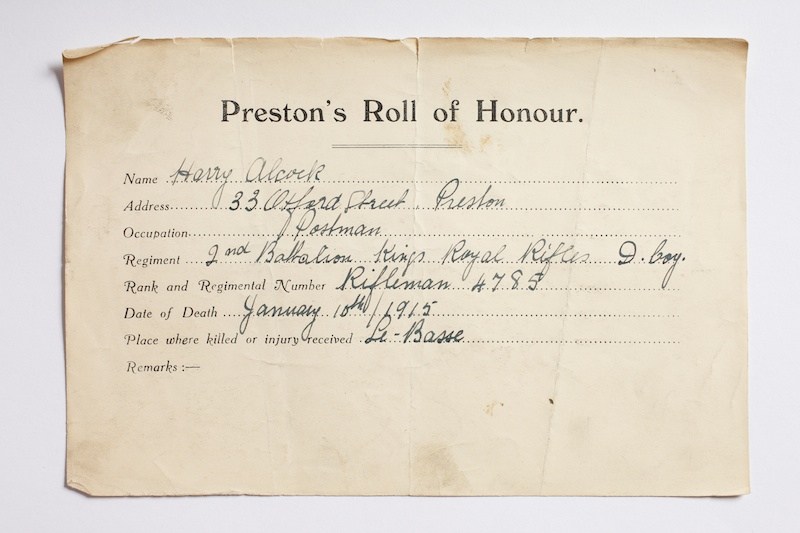 Preston's Roll of Honour.
Name Harry Alcock
Address 33 Otford Street, Preston
Occupation Postman
Regiment 2nd Battalion Kings Royal Rifles D. Coy.
Rank and Regimental Number Rifleman 4785
Date of Death January 10th/1915
Place where killed or injury received Le-Basse
Remarks :—